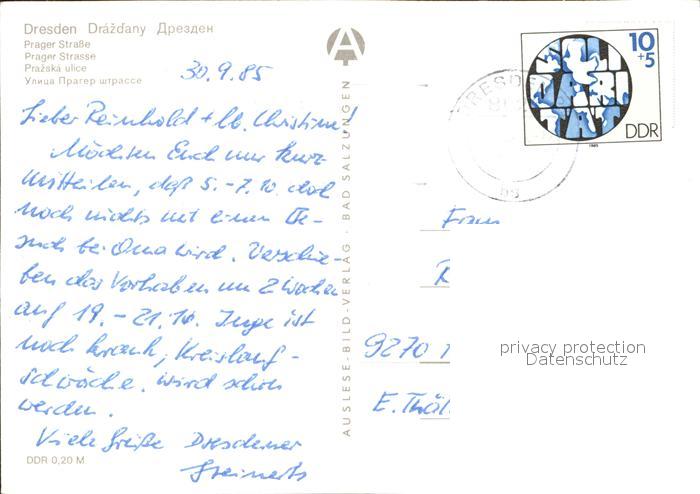 Dresden Drážďany Дрезден
Prager Straße
Prager Strasse
Pražská ulice
Улица Прагер штрассе
30.9.85
Lieber Reinhold + lb. Christine!
Möchten Euch nur kurz
mitteilen, daß 5. - 7.10. doch
noch nichts mit einem Be-
such bei Oma wird. Verschie-
ben das Vorhaben um 2 Wochen
auf 19. - 21.10. Inge ist
noch krank, Kreislauf-
schwäche. Wird schon
werden.
Viele Grüße Dresdener
Steinerts
DDR 0,20 M
AUSLESE-BILD-VERLAG · BAD SALZUNGEN
10
+5
DDR
1985
DRESDEN
Frau
R
9270
E. Thäl
privacy protection
Datenschutz